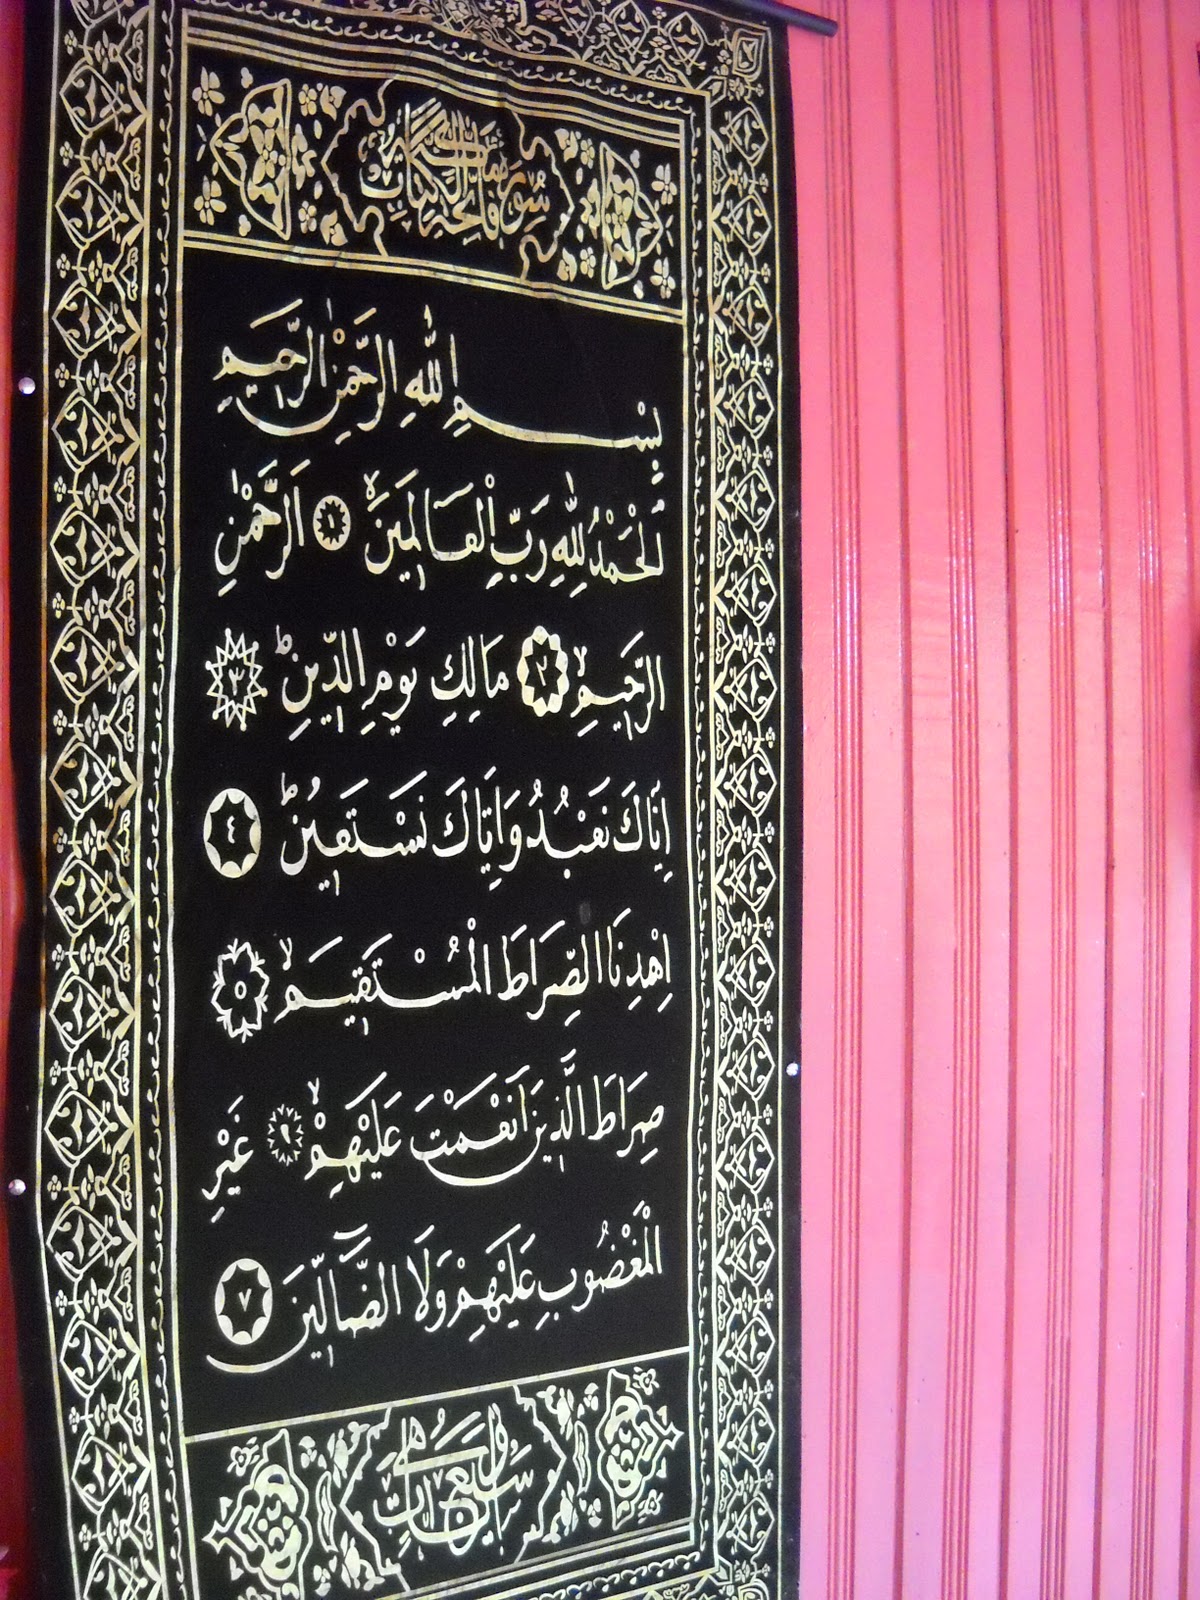 سُورَة فَاتِحَة الْكِتَاب
بِسْمِ اللّٰهِ الرَّحْمٰنِ الرَّحِيمِ
اَلْحَمْدُ لِلّٰهِ رَبِّ الْعَالَمِينَ ۙ ١ اَلرَّحْمٰنِ
الرَّحِيمِ ۙ ٢ مَالِكِ يَوْمِ الدِّينِ ۜ ٣
اِيَّاكَ نَعْبُدُ وَاِيَّاكَ نَسْتَعِينُ ۜ ٤
اِهْدِنَا الصِّرَاطَ الْمُسْتَقِيمَ ۙ ٥
صِرَاطَ الَّذِينَ اَنْعَمْتَ عَلَيْهِمْ ۙ ٦ غَيْرِ
الْمَغْضُوبِ عَلَيْهِمْ وَلَا الضَّالِّينَ ٧